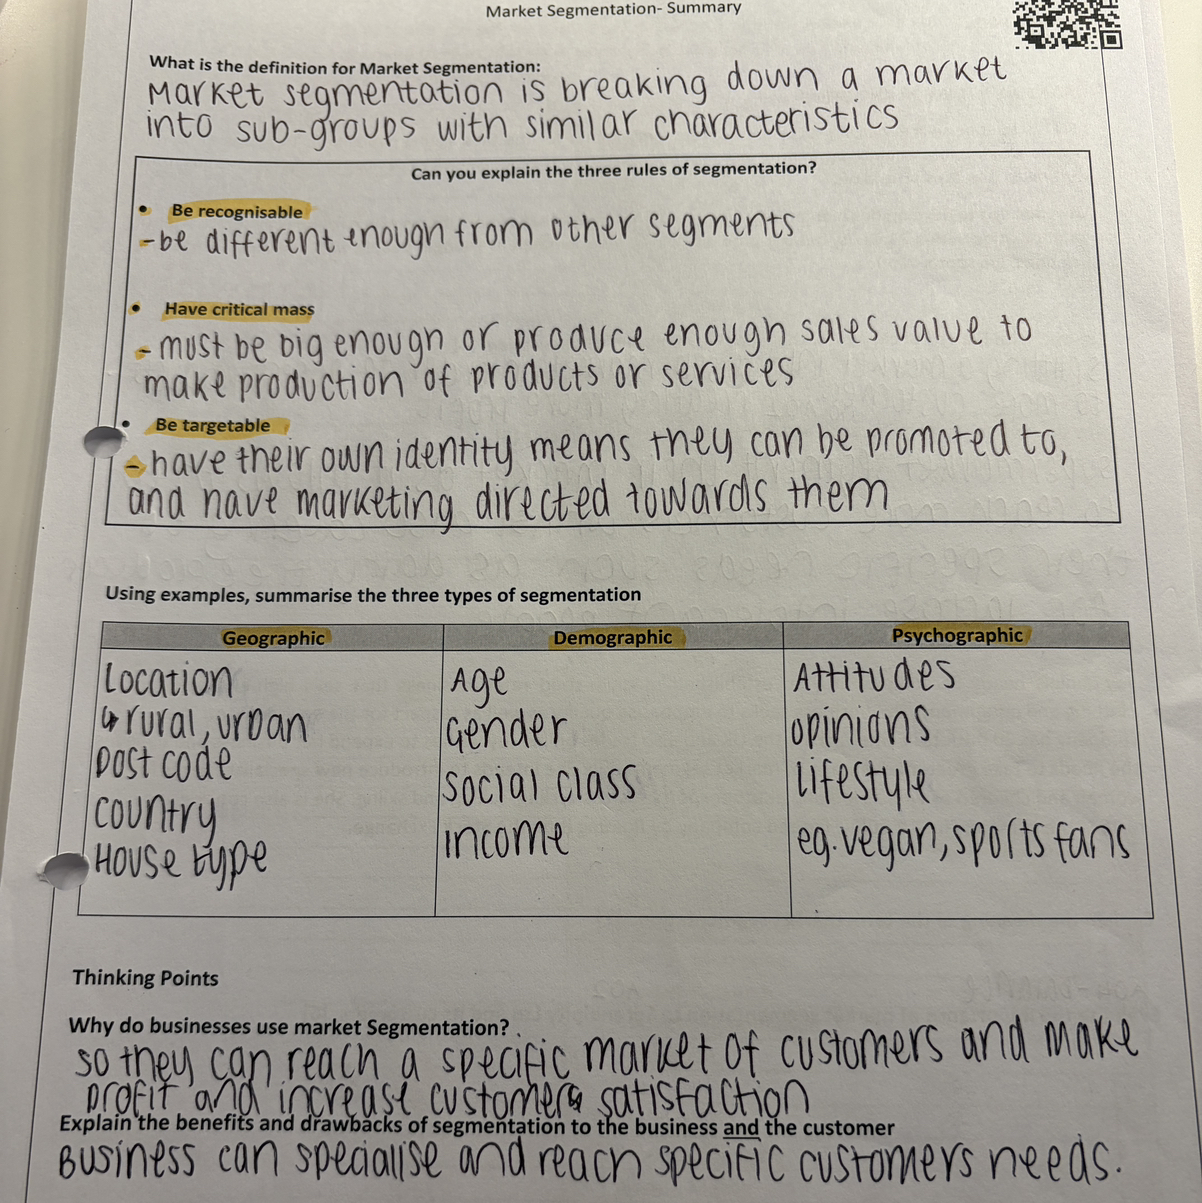 Market Segmentation- Summary
What is the definition for Market Segmentation:
Market segmentation is breaking down a market
into sub-groups with similar characteristics
Can you explain the three rules of segmentation?
• Be recognisable
- be different enough from other segments
• Have critical mass
- must be big enough or produce enough sales value to
make production of products or services
• Be targetable
- have their own identity means they can be promoted to,
and have marketing directed towards them
Using examples, summarise the three types of segmentation
Geographic Demographic Psychographic
Location Age Attitudes
↳ rural, urban Gender opinions
post code social class lifestyle
country income eg. vegan, sports fans
House type
Thinking Points
Why do businesses use market Segmentation?
so they can reach a specific market of customers and make
profit and increase customers satisfaction
Explain the benefits and drawbacks of segmentation to the business and the customer
Business can specialise and reach specific customers needs.